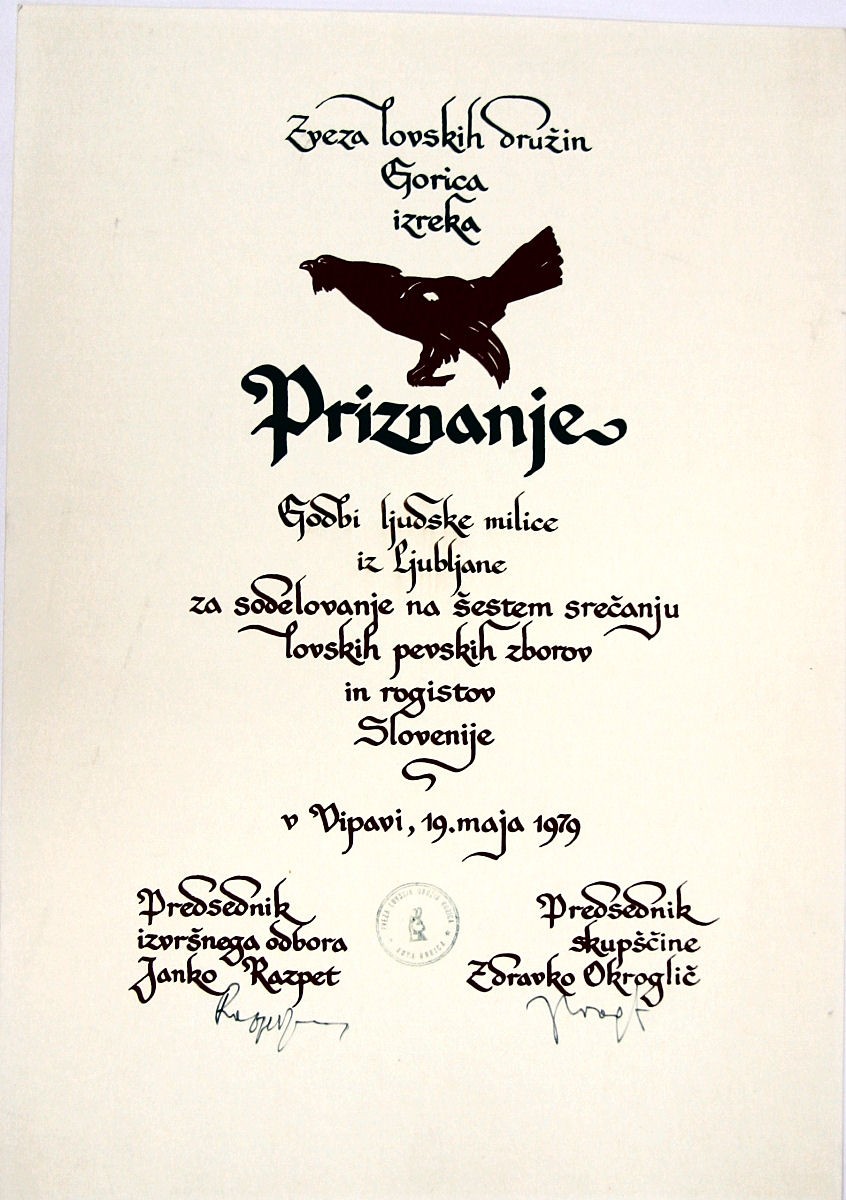 Zveza lovskih družin
Gorica
izreka
Priznanje
Godbi ljudske milice
iz Ljubljane
za sodelovanje na šestem srečanju
lovskih pevskih zborov
in rogistov
Slovenije
v Vipavi, 19. maja 1979
Predsednik
izvršnega odbora
Janko Razpet
Predsednik
skupščine
Zdravko Okroglič
ZVEZA LOVSKIH DRUŽIN GORICA
NOVA GORICA